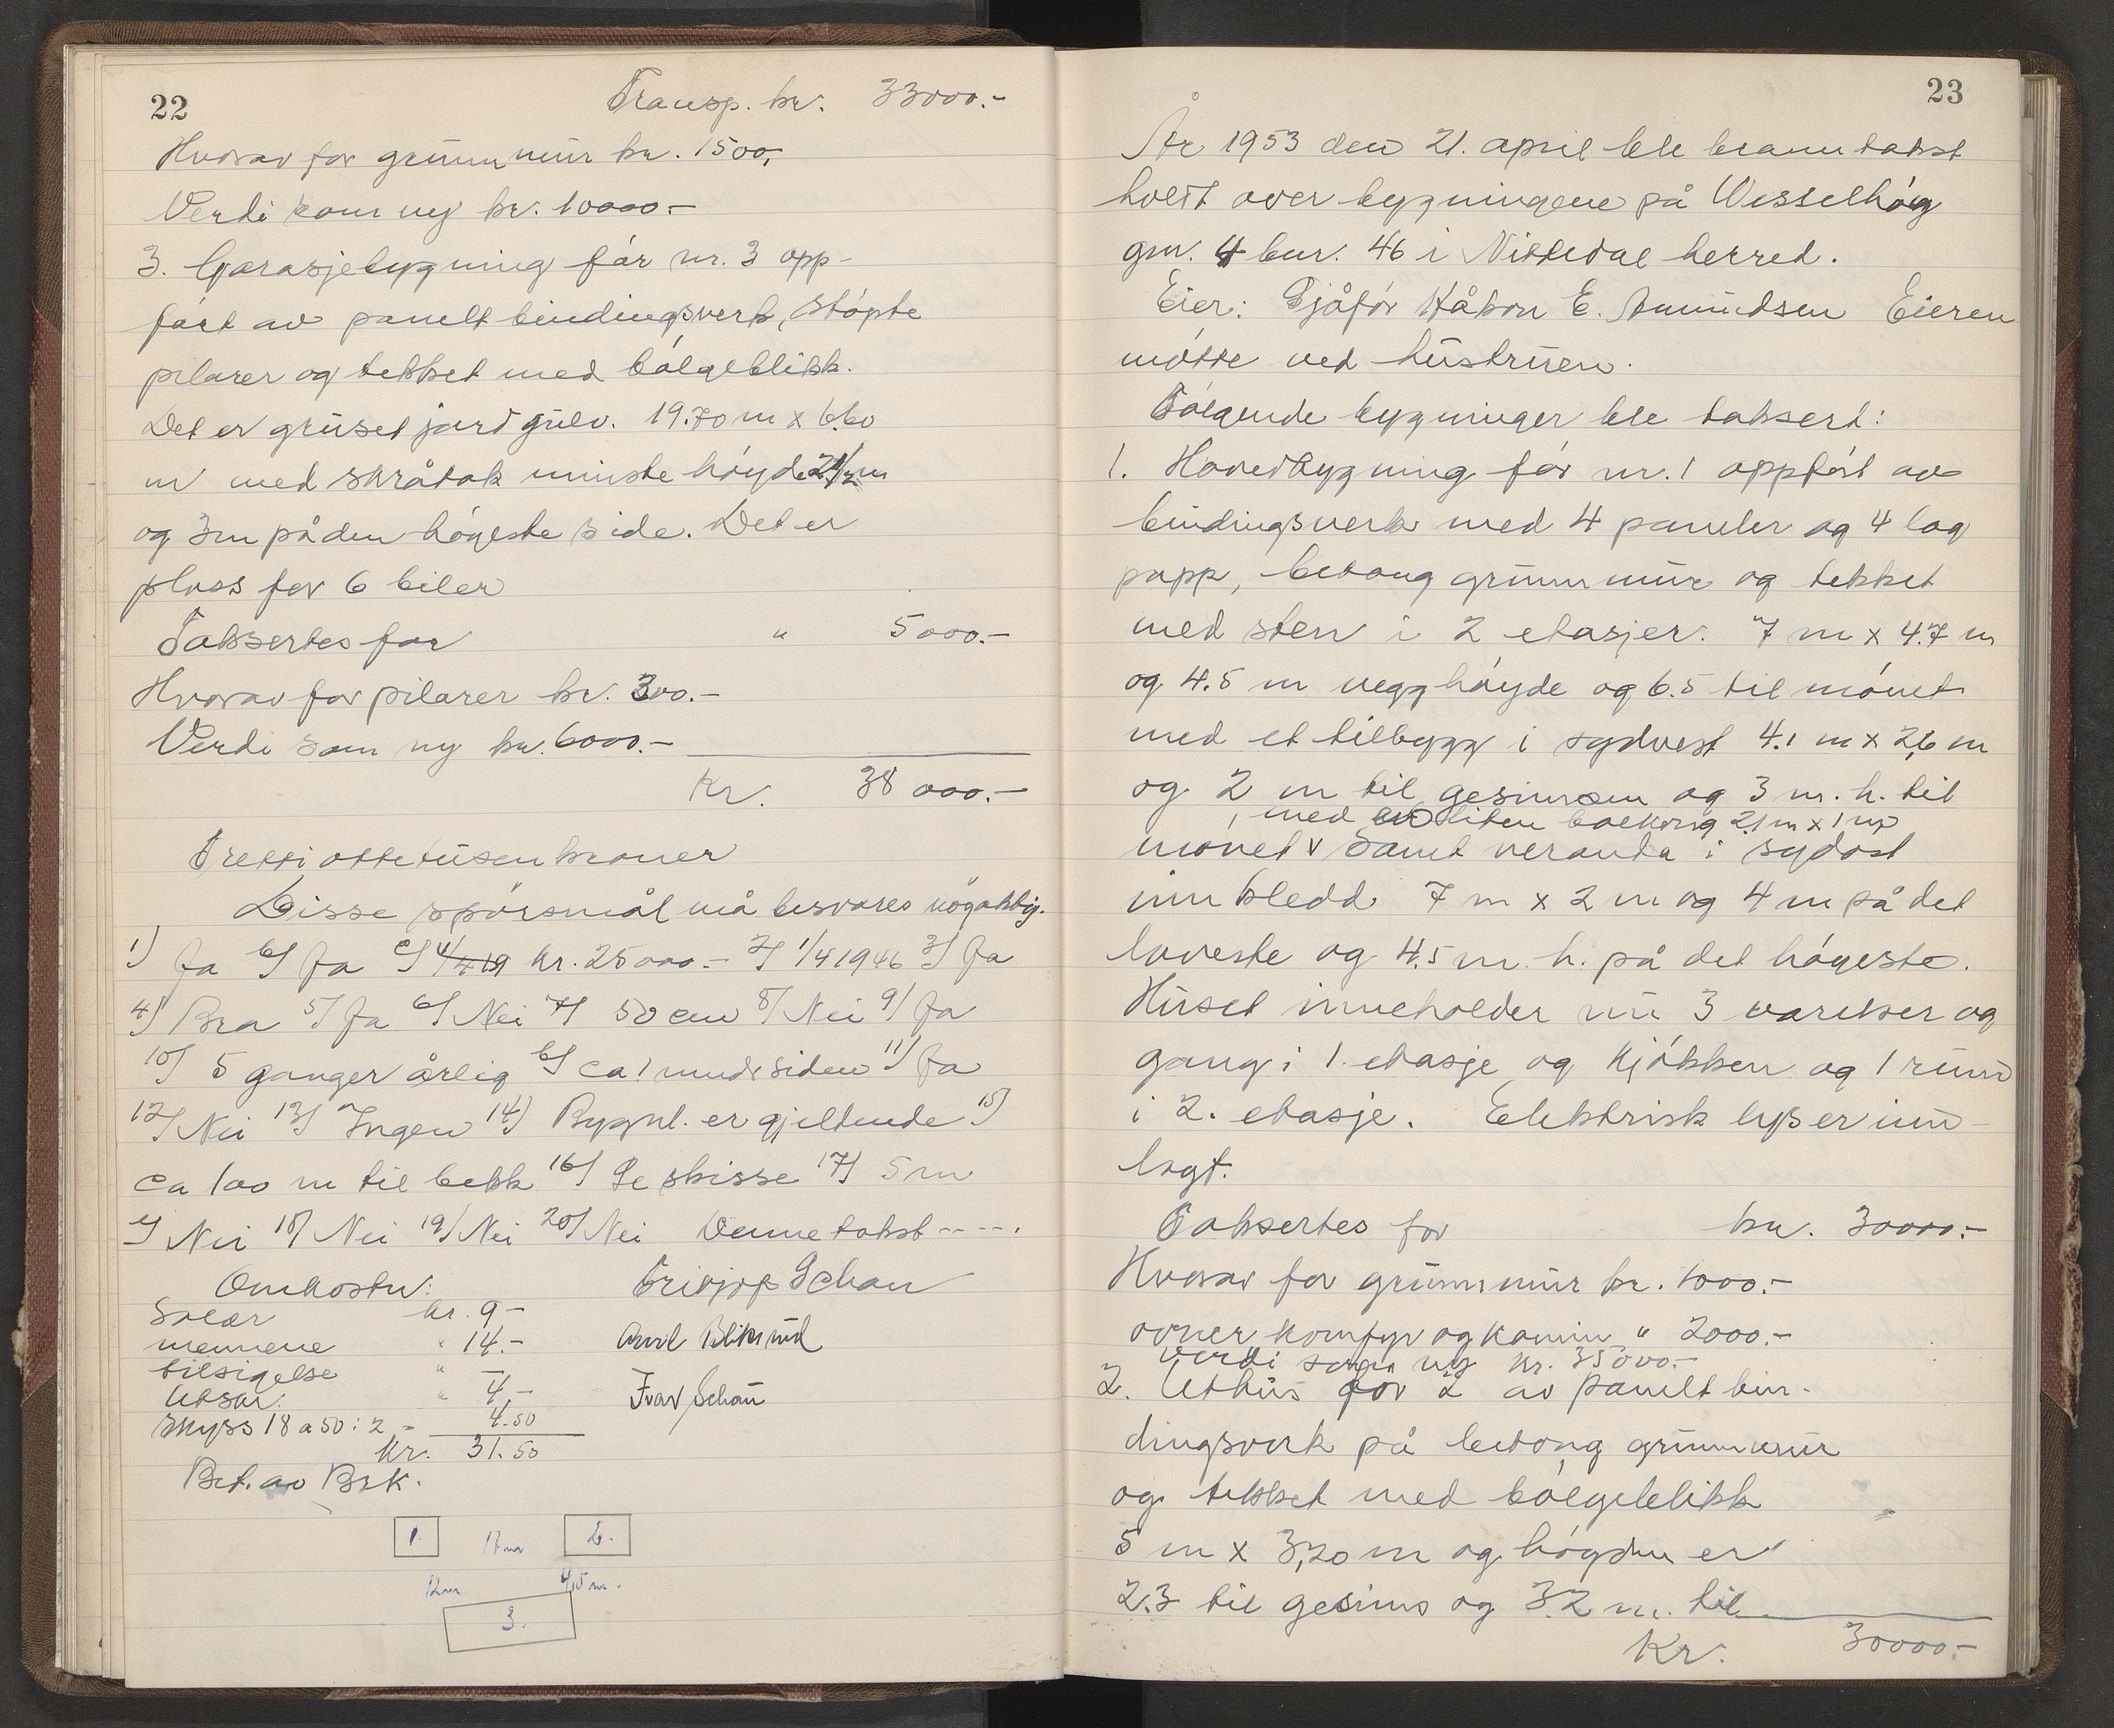 22
Transp. kr. 33000.-
Hvorav for grunnmur kr. 1500,-
Verdi som ny kr. 10000.-
3. Garasjebygning før nr. 3 opp-
ført av panelt bindingsverk, støpte
pilarer og tekket med bølgeblikk.
Det er gruset jord gulv. 19.70 m x 6.60
m med skråtak minste høyde 2 1/2 m
og 3m på den høgeste side. Det er
plass for 6 biler
Taksertes for " 5000.-
Hvorav for pilarer kr. 300.-
Verdi som ny kr. 6000.-
Kr. 38 000.-
Trettiottetusenkroner
Disse spørsmål må besvares nøyaktig.
1) Ja b) Ja c) kr. 25000.- 2) 1/4 1946 3) Ja
4) Bra 5) Ja 6) Nei 7) 50 cm 8) Nei 9) Ja
10) 5 ganger årlig b) ca 1 mnd siden 11) Ja
12) Nei 13) Ingen 14) Bygnl. er gjeldende 15)
ca 100 m til bekk 16) Se skisse 17) 5 m
Nei 18) Nei 19) Nei 20) Nei Denne takst - - - - .
Omkostn:
Salær kr. 9-
mennene " 14.-
tilsigelse " —
Utskr. " 4,-
Skyss 18 a 50 : 2 - 4.50
Kr. 31.50
Bet. av Brk.
Schau
Ivar Schau
1. 17 m 2.
12m 4,5 m.
3.
23
År 1953 den 21. april ble branntakst
holdt over bygningene på Wesselhøy
gnr. 4 bnr. 46 i Nittedal herred.
Eier: Sjåfør Håkon E. Amundsen Eieren
møtte ved hustruen.
Følgende bygninger ble taksert:
1. Hovedbygning før nr. 1 oppført av
bindingsverk med 4 paneler og 4 lag
papp, betong grunnmur og tekket
med sten i 2 etasjer. 7 m x 4.7 m
og 4.5 m vegghøyde og 6.5 til mønet
med et tilbygg i sydvest 4.1 m x 2,6 m
og 2 m til gesimsen og 3 m. h. til
, med en liten balkong 2.1 m x 1 m
mønet v samt veranda i sydost
innkledd 7 m x 2 m og 4 m på det
laveste og 4.5 m. h. på det høgeste.
Huset inneholder nu 3 værelser og
gang i 1. etasje og kjøkken og 1 rum
i 2. etasje. Elektrisk lys er inn-
lagt.
Taksertes for kr. 30000.-
Hvorav for grunnmur kr. 1000.-
ovner komfyr og kamin " 2000.-
verdi som ny kr. 35000.-
2. Uthus før 2 av panelt bin-
dingsverk på betong grunnmur
og tekket med bølgeblikk
5 m x 3,20 m og høyden er
2.3 til gesims og 3.2 m. til
Kr. 30000.-